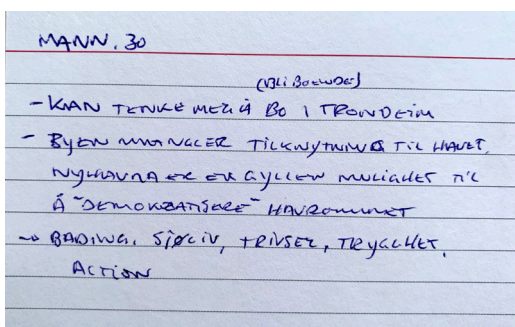 MANN, 30
(BLI BOENDE)
- KAN TENKE MEG Å BO I TRONDEIM
- BYEN MANGLER TILKNYTNING TIL HAVET,
NYHAVNA ER EN GYLLEN MULIGHET TIL
Å "DEMOKRATISERE" HAVROMMET
→ BADING, SJØLIV, TRIVSEL, TRYGGHET,
ACTION